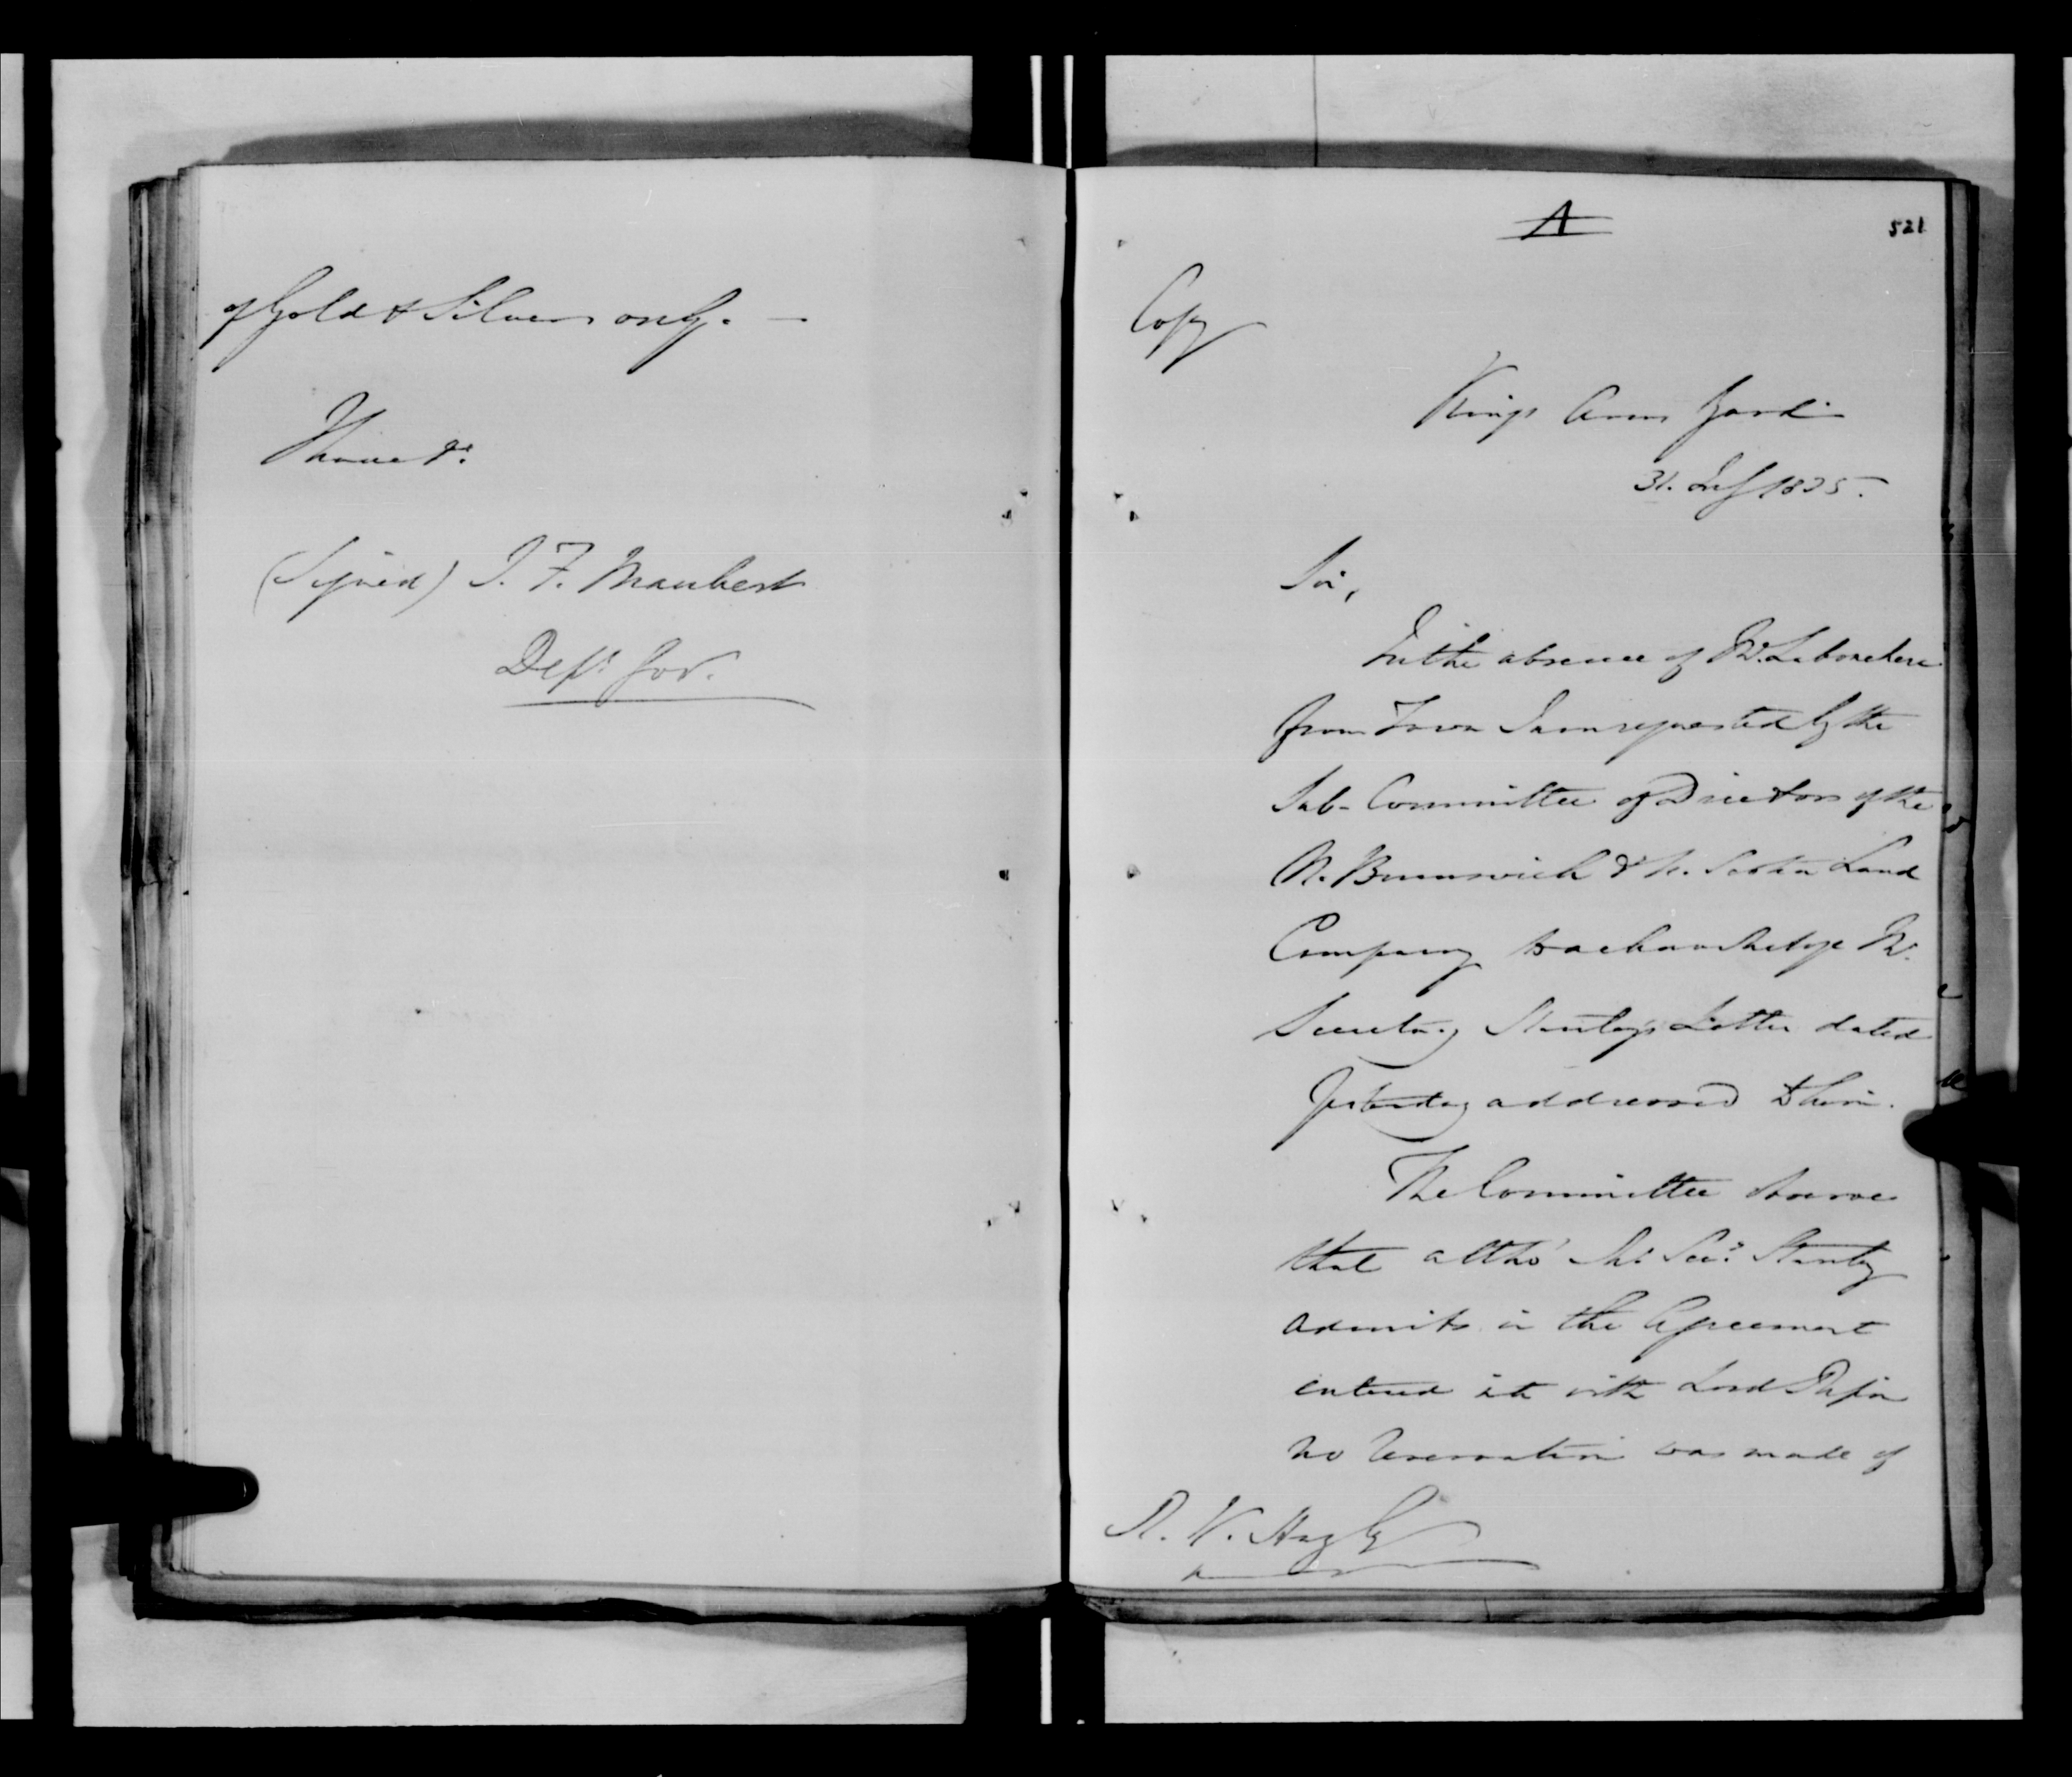 of Gold & Silver only. —
I have &c.
(Signed) J. F. Maubert
Dep. Gov.
A
521
Copy
Kings Arms Yard
31. July 1835.
Sir,
In the absence of Mr. Labouchere
from Town I am requested by the
Sub-Committee of Directors of the
N. Brunswick & N. Scotia Land
Company to acknowledge Mr.
Secretary Stanley's Letter dated
yesterday addressed to him.
The Committee observe
that altho' Mr. Secy. Stanley
admits in the Agreement
entered into with Lord Ripon
no reservation was made of
R. W. Hay Esq